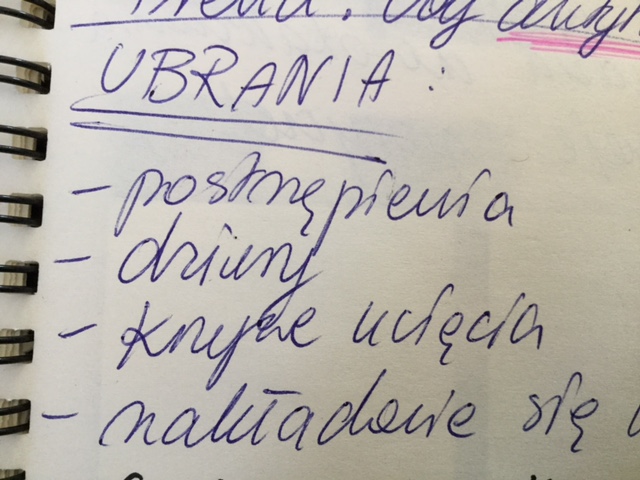 UBRANIA :
- postrzępienia
- dziury
- krzywe ucięcia
- nakładanie się